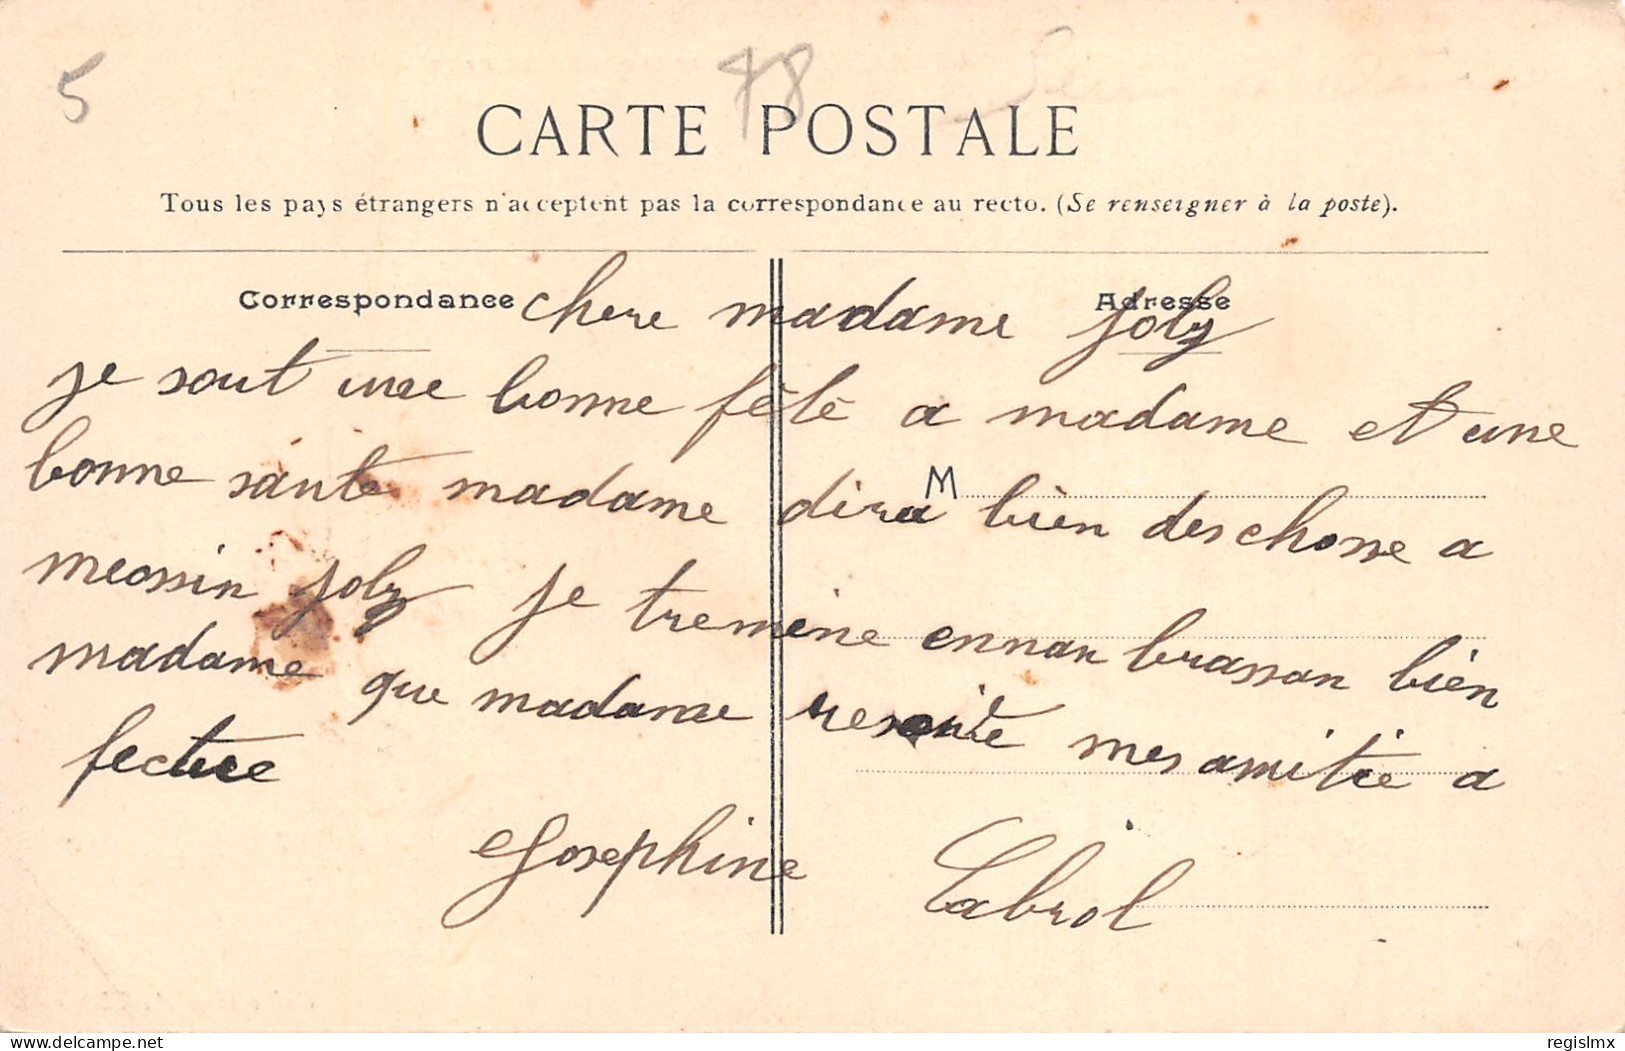 5
78
CARTE POSTALE
Tous les pays étrangers n'acceptent pas la correspondance au recto. (Se renseigner à la poste).
Correspondance
Adresse
chere madame joly
je sout une bonne fête a madame et une
bonne santé madame dira bien des chosse a
M
messin joly je tremine ennan brassan bien
madame que madame mes amitie a
fectuee
Josephine Cabrol
www.delcampe.net
regislmx